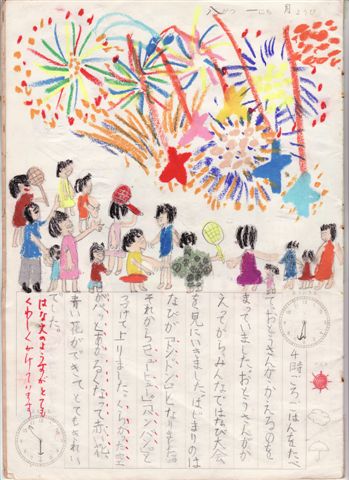 八がつ 一にち 月ようび
4時ごろごはんをたべ
ておとうさんがかえるのを
まっていました。おとうさんがか
えってからみんなではなび大会
を見にいきました。はじまりのは
なびがドンドンとなりました。
それからヒュードンパンパンと
つづけて上りました。くらかった空
がパッとあかるくなって赤い花
青い花ができてとてもきれい
でした。
はな火のようすがとても
くわしくかけています。